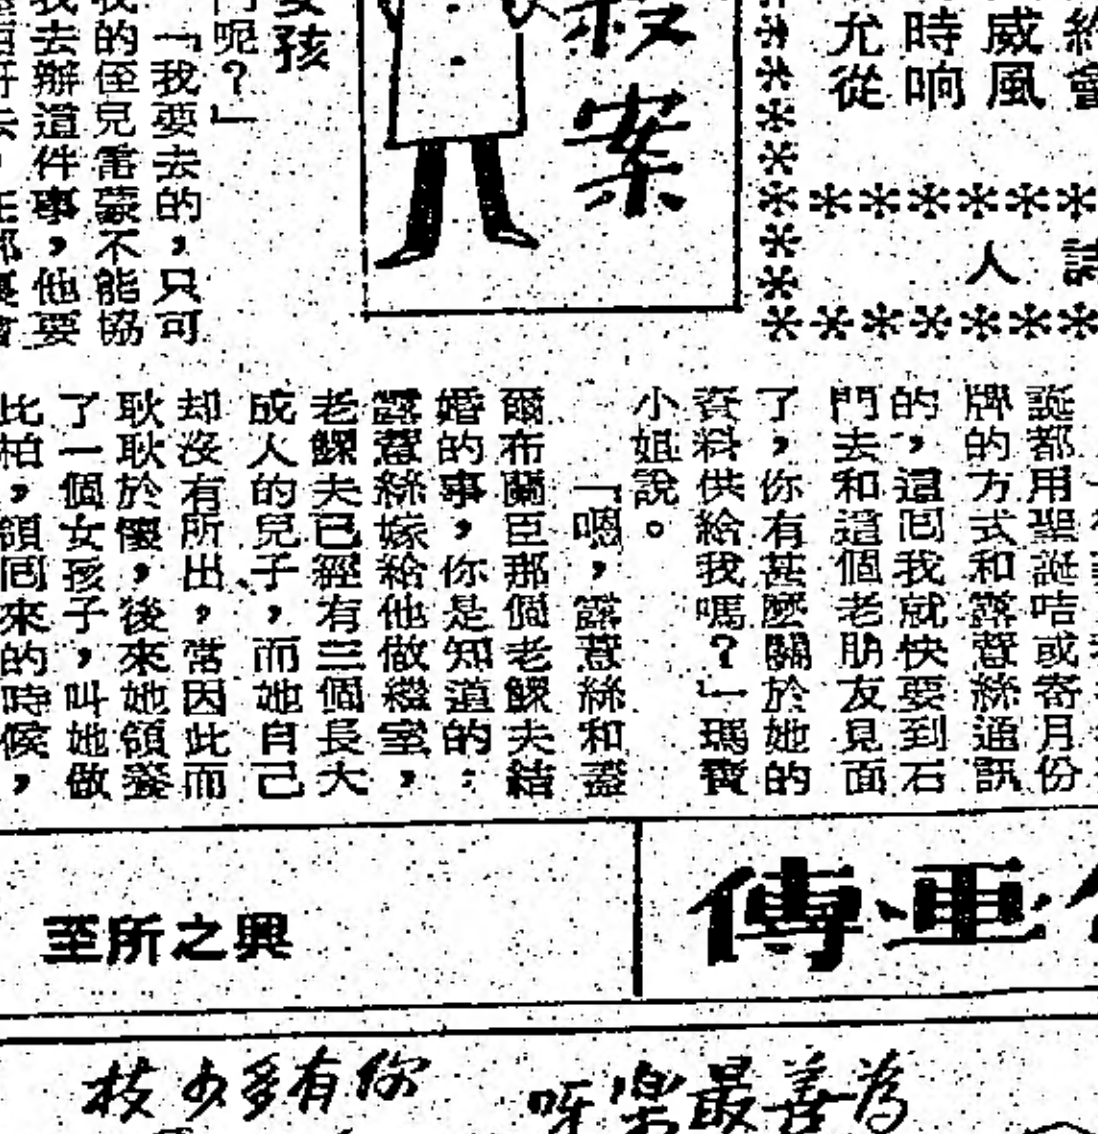 約會
威風
時响
允從
詩人
殺案
女孩
門呢？」
「我要去的，只可
我的侄兒雷蒙不能協
我去辦這件事，他要
誕都用聖誕咭或寄月份
牌的方式和露薏絲通訊
的，這囘我就快要到石
門去和這個老朋友見面
了，你有甚麼關於她的
資料供給我嗎？」瑪寶
小姐說。
「嗯，露薏絲和蓋
爾布蘭臣那個老鰥夫結
婚的事，你是知道的：
露薏絲嫁給他做繼室，
老鰥夫已經有三個長大
成人的兒子，而她自己
却沒有所出，常因此而
耿耿於懷，後來她領養
了一個女孩子，叫她做
比柏，領囘來的時候，
畫傳
興之所至
為善最樂呀
你有多少枝